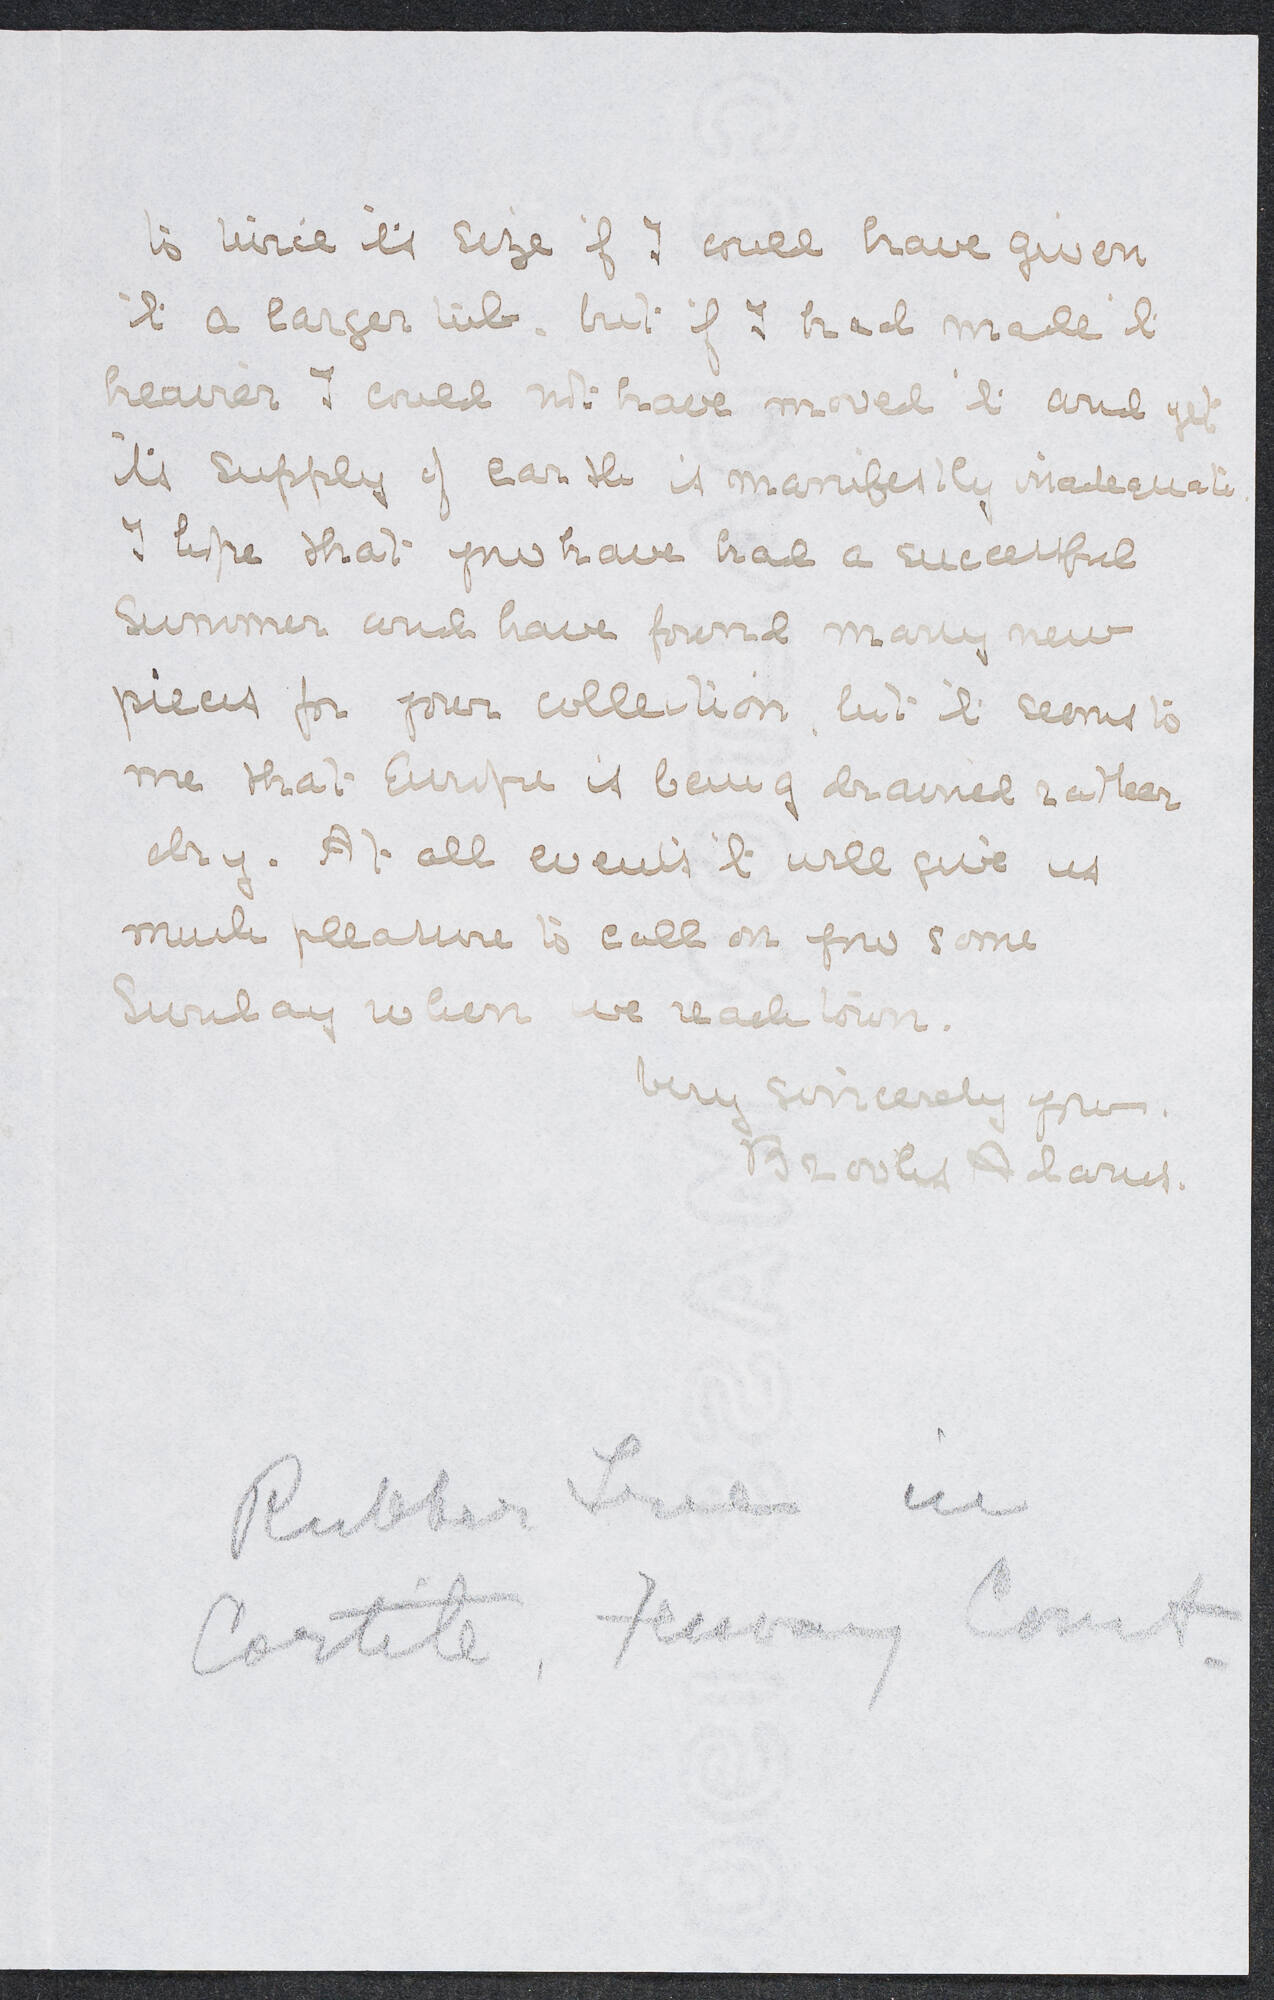 to twice its size if I could have given
it a larger tub. but if I had made it
heavier I could not have moved it and yet
its supply of earth is manifestly inadequate.
I hope that you have had a successful
Summer and have found many new
pieces for your collection, but it seems to
me that Europe is being drained rather
dry. At all events it will give us
much pleasure to call on you some
Sunday when we reach town.
Very sincerely yours.
Brooks Adams.
Rubber Tree in
Cortile, Fenway Court.